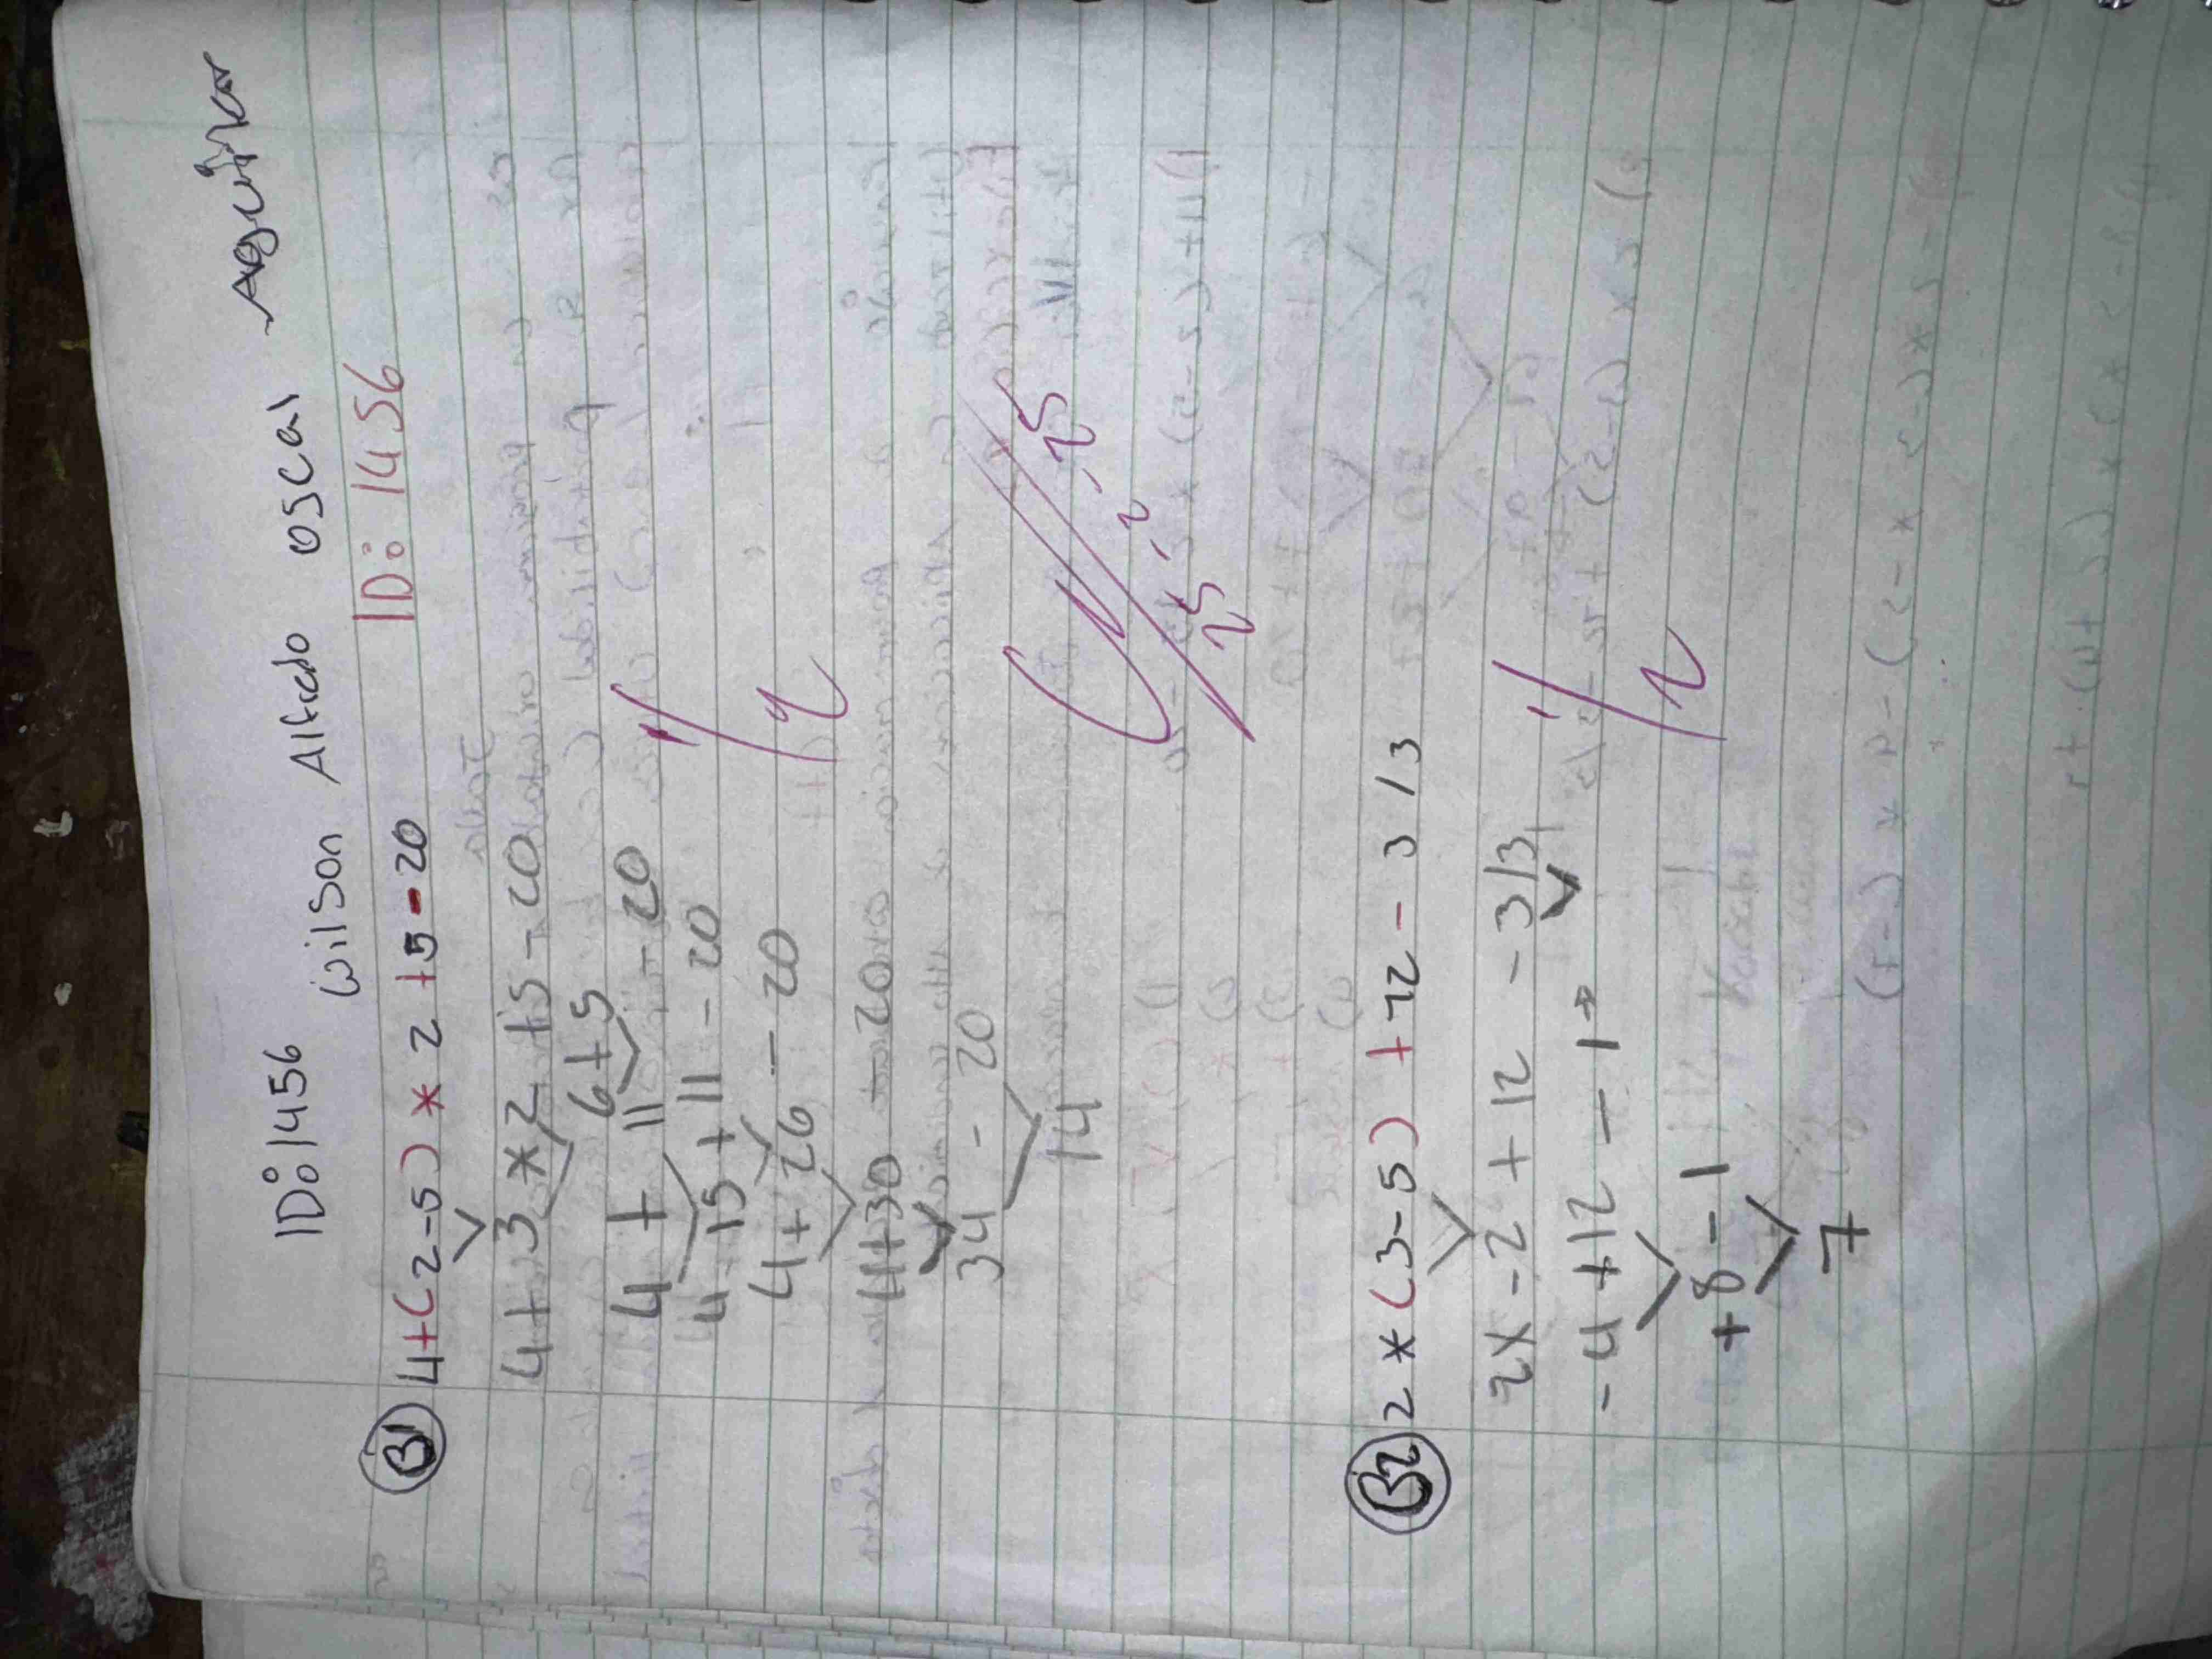 ID: 1456
Wilson Alfredo oscal Aguilar
ID: 1456
B1 4+(2-5)*2+5-20
4+3*2+5-20
6+5
4+11-20
4+15+11-20
4+26-20
4+30-20
34-20
14
25
B2 2*(3-5)+12-3/3
2x-2+12-3/3
-4+12-1
+8-1
7